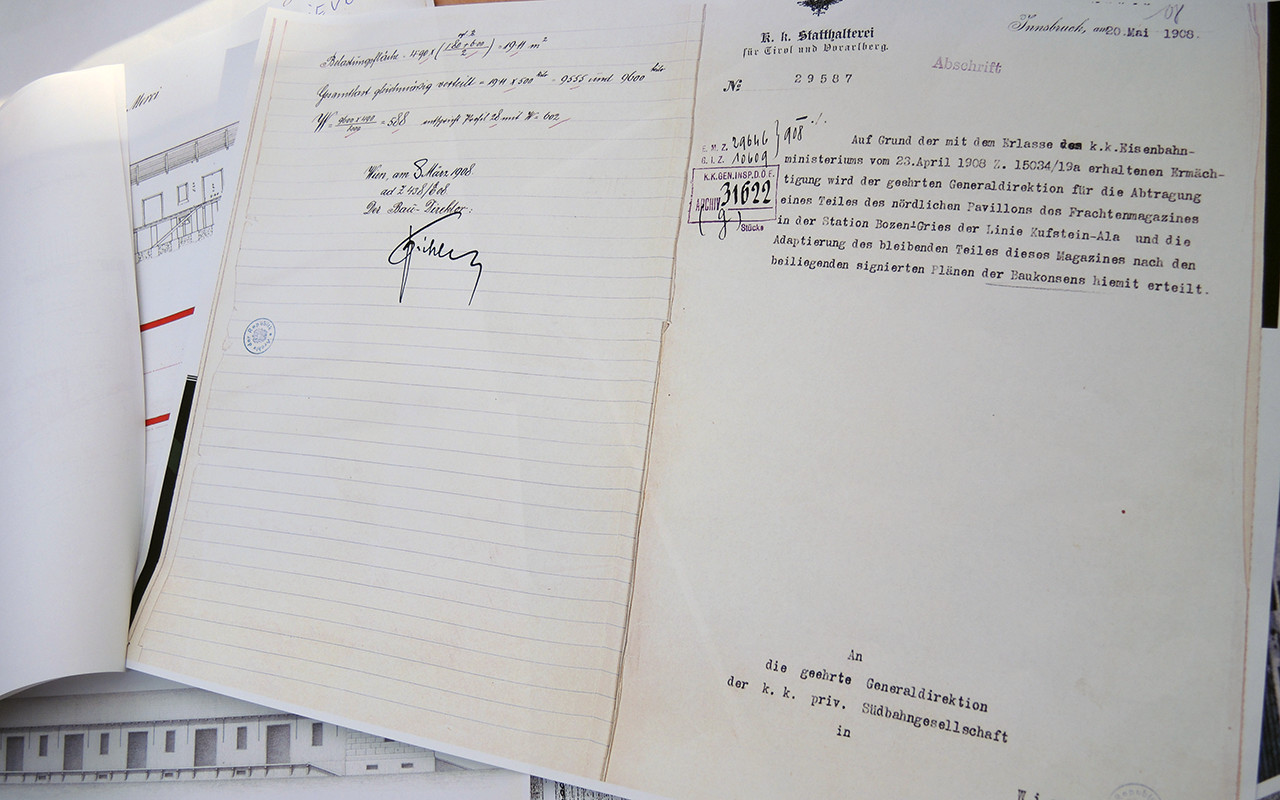 Merci
Belastungsfläche = 4·90 x ( 180 + 600 / 2 ) = 19·11 m²
Gesamtlast gleichmässig verteilt = 19·11 x 500 kilo = 9555 rund 9600 kilo
W = 9600 x 490 / 8000 = 588 entspricht Profil 28 mit W = 602
Wien, am 8 März 1908
ad Z 438/B 08
Der Bau-Direktor:
K. k. Statthalterei
für Tirol und Vorarlberg.
Innsbruck, am 20.Mai 1908.
Abschrift
№ 29587
E. M. Z. 29646
G. I. Z. 10609
908
K.K.GEN.INSP.D.Ö.E.
ARCHIV 31622
(9) Stücke
Auf Grund der mit dem Erlasse des k.k.Eisenbahn-
ministeriums vom 23.April 1908 Z. 15034/19a erhaltenen Ermäch-
tigung wird der geehrten Generaldirektion für die Abtragung
eines Teiles des nördlichen Pavillons des Frachtenmagazines
in der Station Bozen-Gries der Linie Kufstein-Ala und die
Adaptierung des bleibenden Teiles dieses Magazines nach den
beiliegenden signierten Plänen der Baukonsens hiemit erteilt.
An
die geehrte Generaldirektion
der k. k. priv. Südbahngesellschaft
in
W i